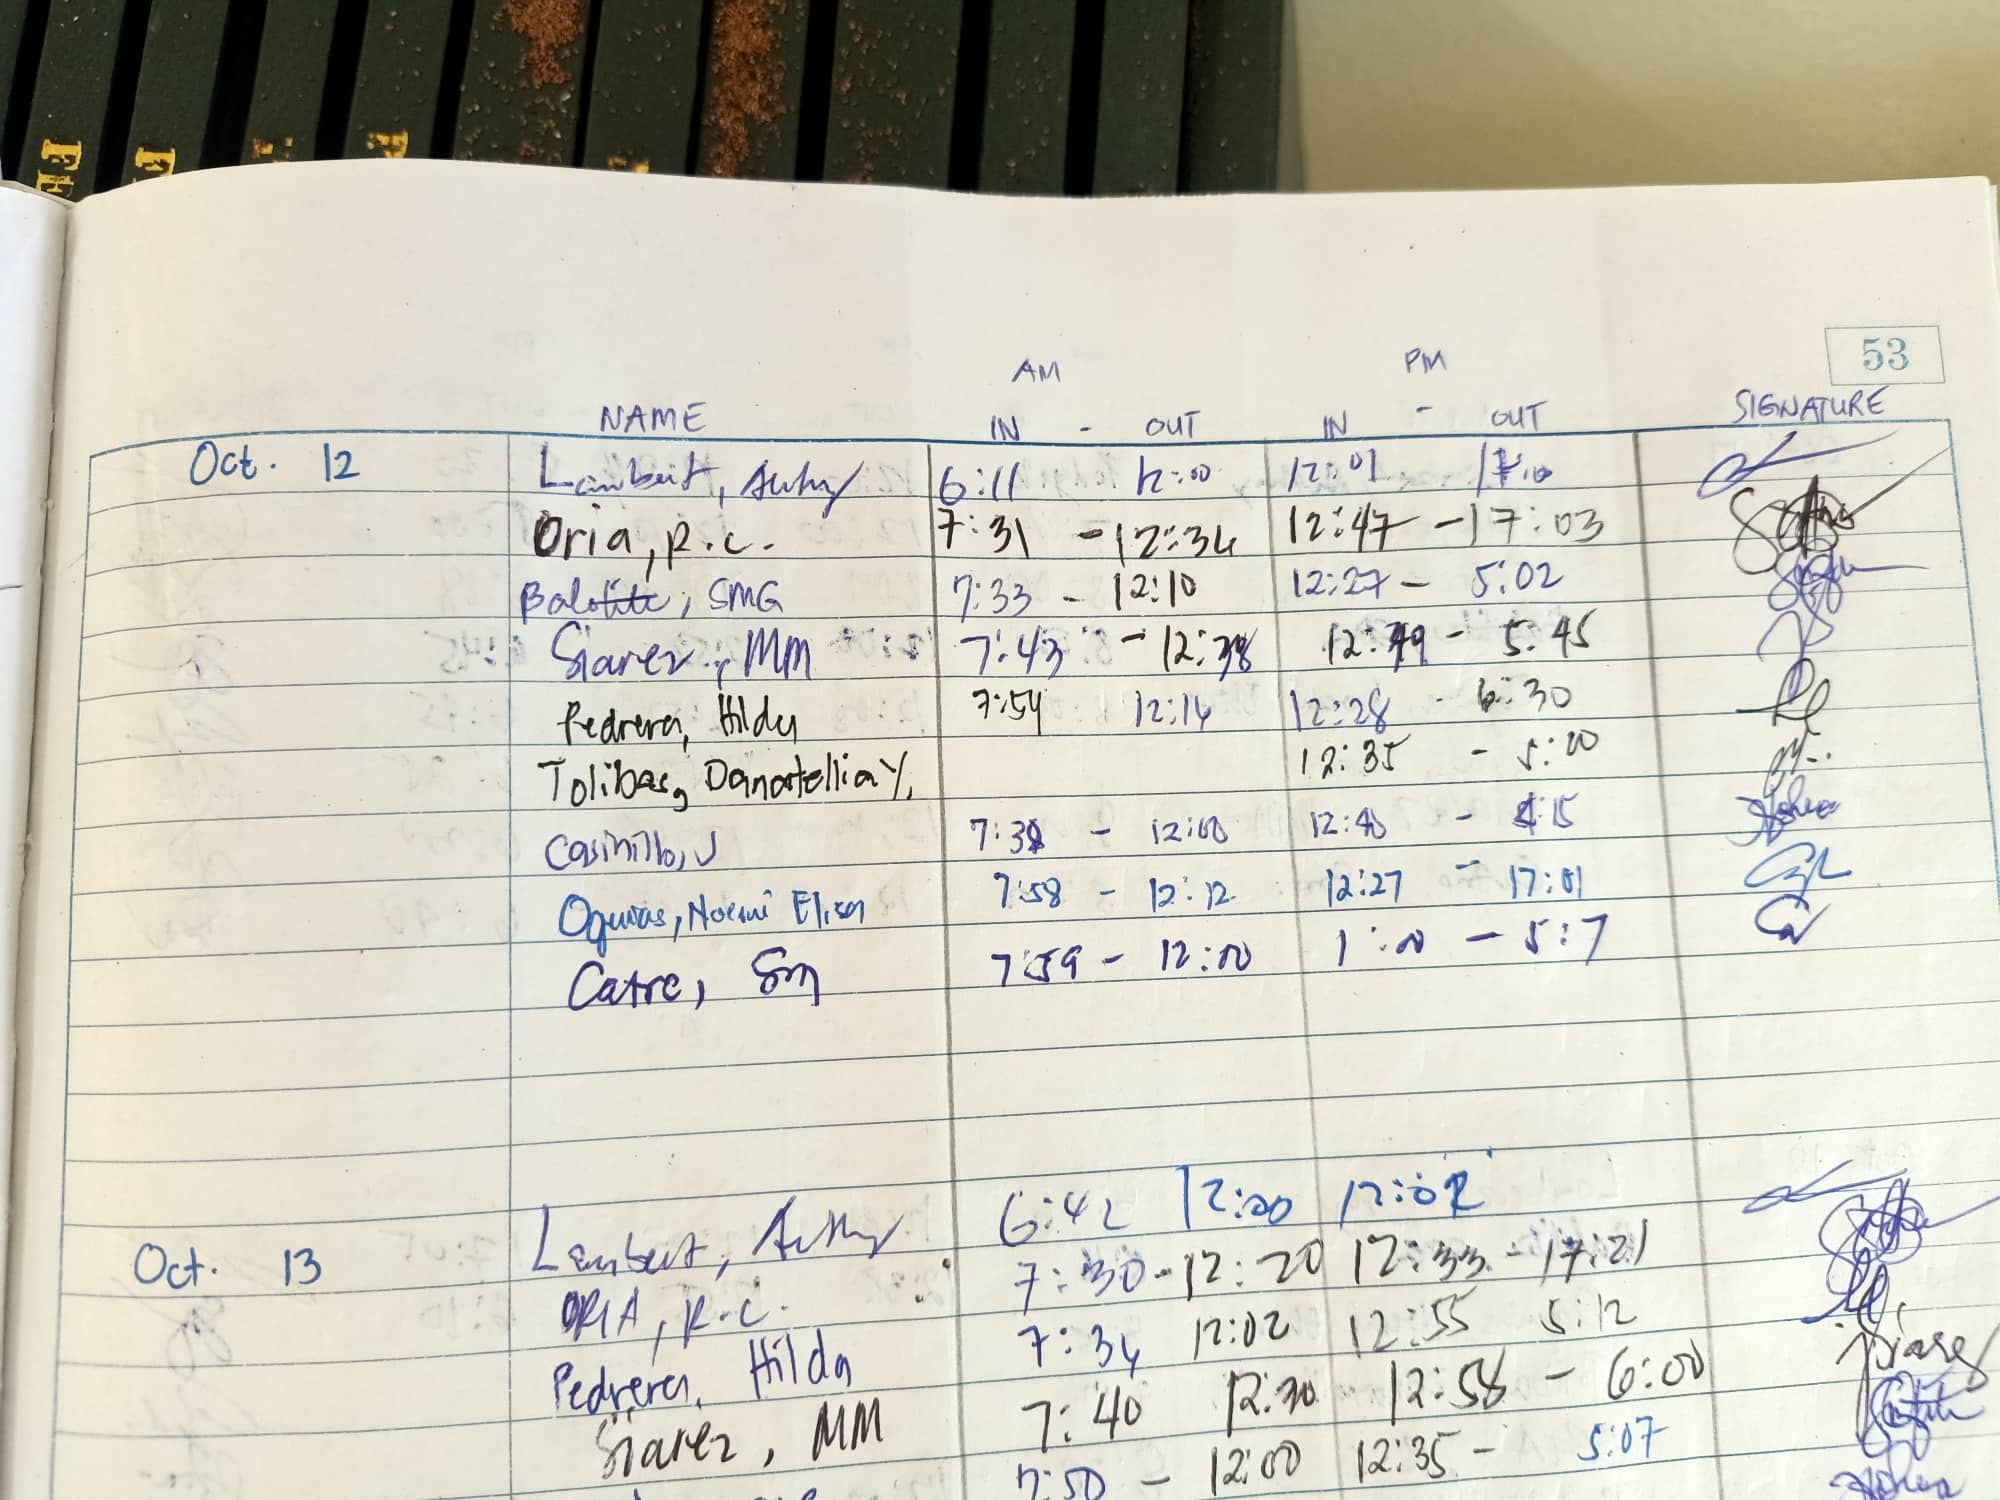 53
AM PM
NAME IN - OUT IN - OUT SIGNATURE
Oct. 12 Lambert, 6:11 12:00 12:01
Oria, R.C. 7:31 - 12:34 12:47 - 17:03
Balotite, SMG 7:33 - 12:10 12:27 - 5:02
Siarez, MM 7:43 - 12:38 12:49 - 5:45
Pedrera, Hilda 7:54 12:14 12:28 - 6:30
Tolibas, Danatellia Y. 12:35 - 5:20
Casinillo, J 7:38 - 12:00 12:40 -
Oquias, Noemi Elisa 7:58 - 12:12 12:27 - 17:01
Catre, Sm 7:59 - 12:00 1:00 - 5:7
Lambert, 6:42 12:00 12:02
Oct. 13 ORIA, R.C. 7:30 - 12:20 12:33 - 17:21
Pedrera, Hilda 7:34 12:02 12:55 5:12
Siarez, MM 7:40 12:30 12:58 - 6:00
7:50 - 12:00 12:35 - 5:07